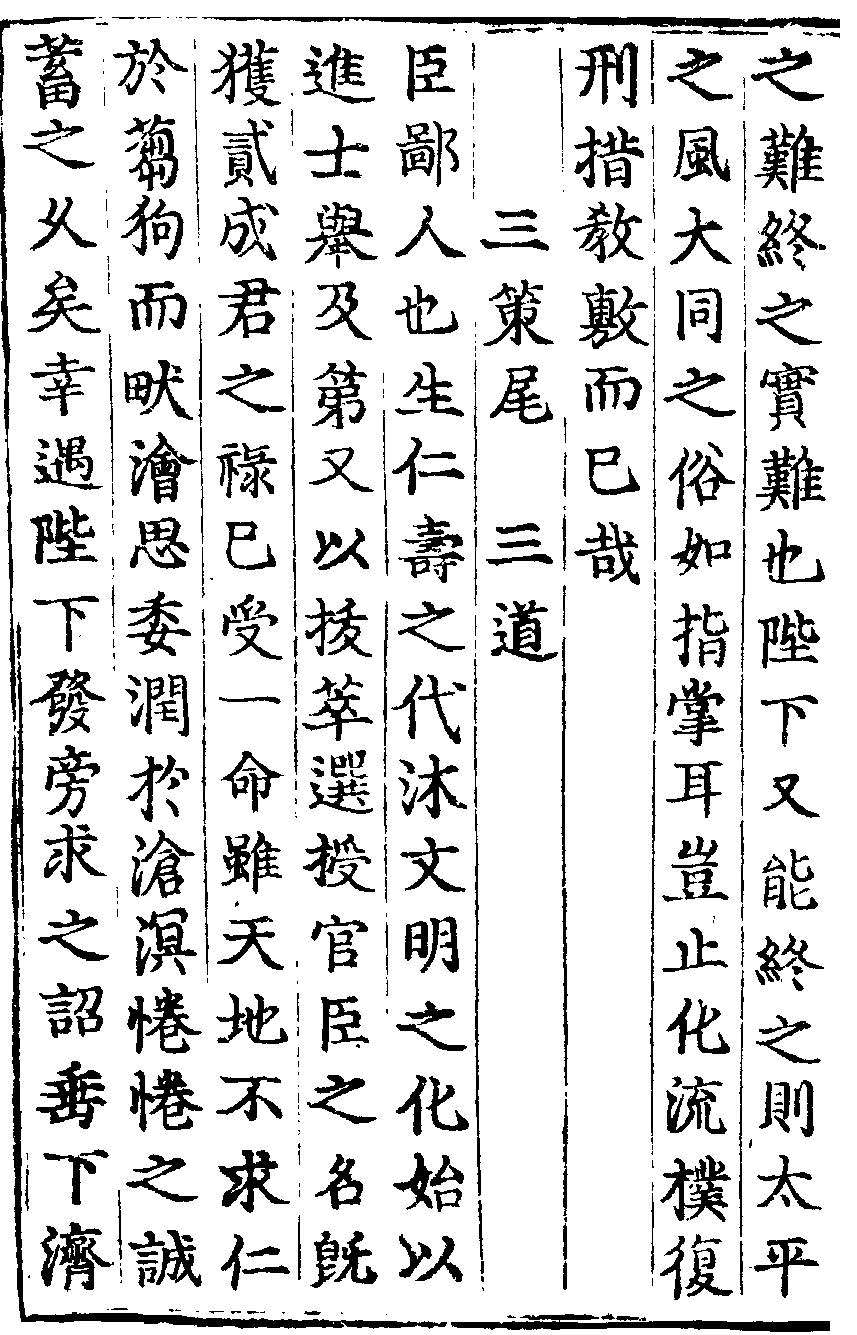 之難終之實難也陛下又能終之則太平
之風大同之俗如指掌耳豈止化流樸復
刑措教敷而已哉
三策尾　三道
臣鄙人也生仁壽之代沐文明之化始以
進士舉及第又以拔萃選授官臣之名旣
獲貳成君之祿已受一命雖天地不求仁
於蒭狗而畎澮思委潤於滄溟惓惓之誠
蓄之乆矣幸遇陛下發旁求之詔垂下濟